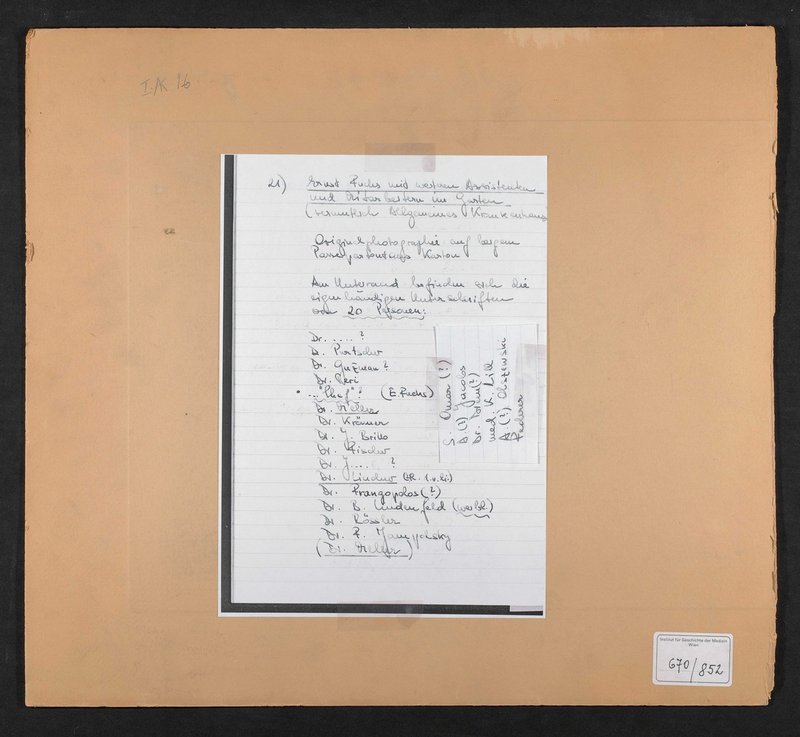 I.AK 16
21) Ernst Fuchs mit weiteren Assistenten
und Mitarbeitern im Garten
(vermutlich Allgemeines Krankenhaus
Originalphotographie auf
Passepartout Karton
Am Unterrand befinden sich die
eigenhändigen Unterschriften
von 20 Personen:
Dr. .... ?
Dr. Purtscher
Dr. Guzman?
Dr.
... "Chef"! (E. Fuchs)
Dr. Meller
Dr. Krämer
Dr. J. Brillo
Dr. Fischer
Dr. J.... ?
Dr. Lindner (IR. 1.v.li.)
Dr. Frangopolos (?)
Dr. B. Lindenfeld (weibl.)
Dr. Rössler
Dr. F.
(Dr. Meller)
S. (?)
D.(?) Jacobs
Dr. (?)
med. K. Lill
A (?) Olszewski
Federer
Institut für Geschichte der Medizin
Wien
670/852